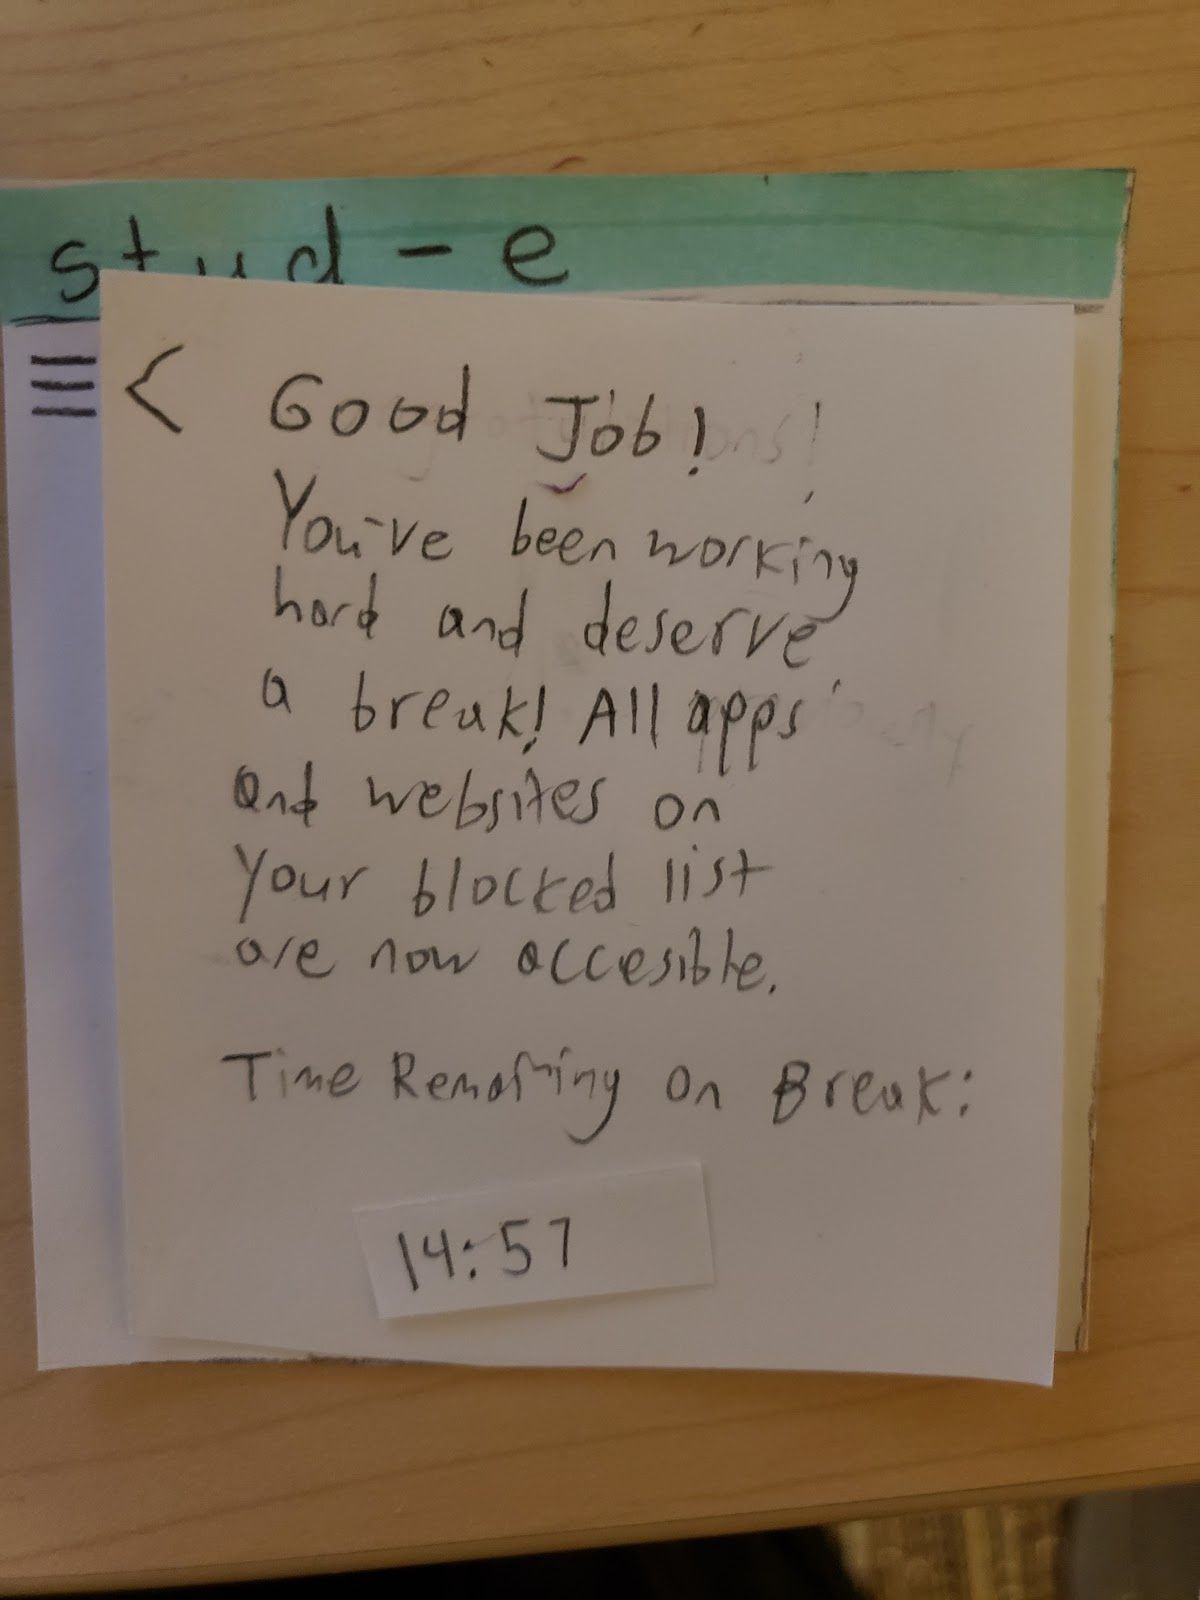 stud-e
< Good Job!
You've been working
hard and deserve
a break! All apps
and websites on
your blocked list
are now accesible.
Time Remaining on Break:
14:57